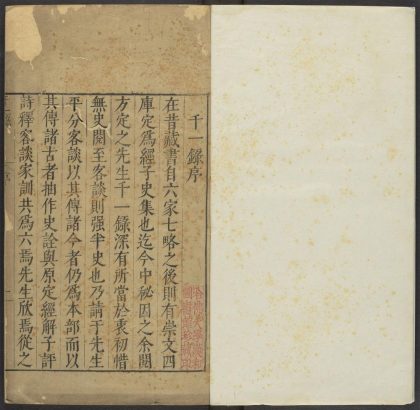 千一錄序
在昔藏書自六家七略之後則有崇文四
庫定爲經子史集也迄今中秘因之余閱
方定之先生千一錄深有所當於衷初惜
無史閱至客談則强半史也乃請于先生
平分客談以其傳諸今者仍爲本部而以
其傳諸古者抽作史詮與原定經解子評
詩釋客談家訓共爲六焉先生欣焉從之